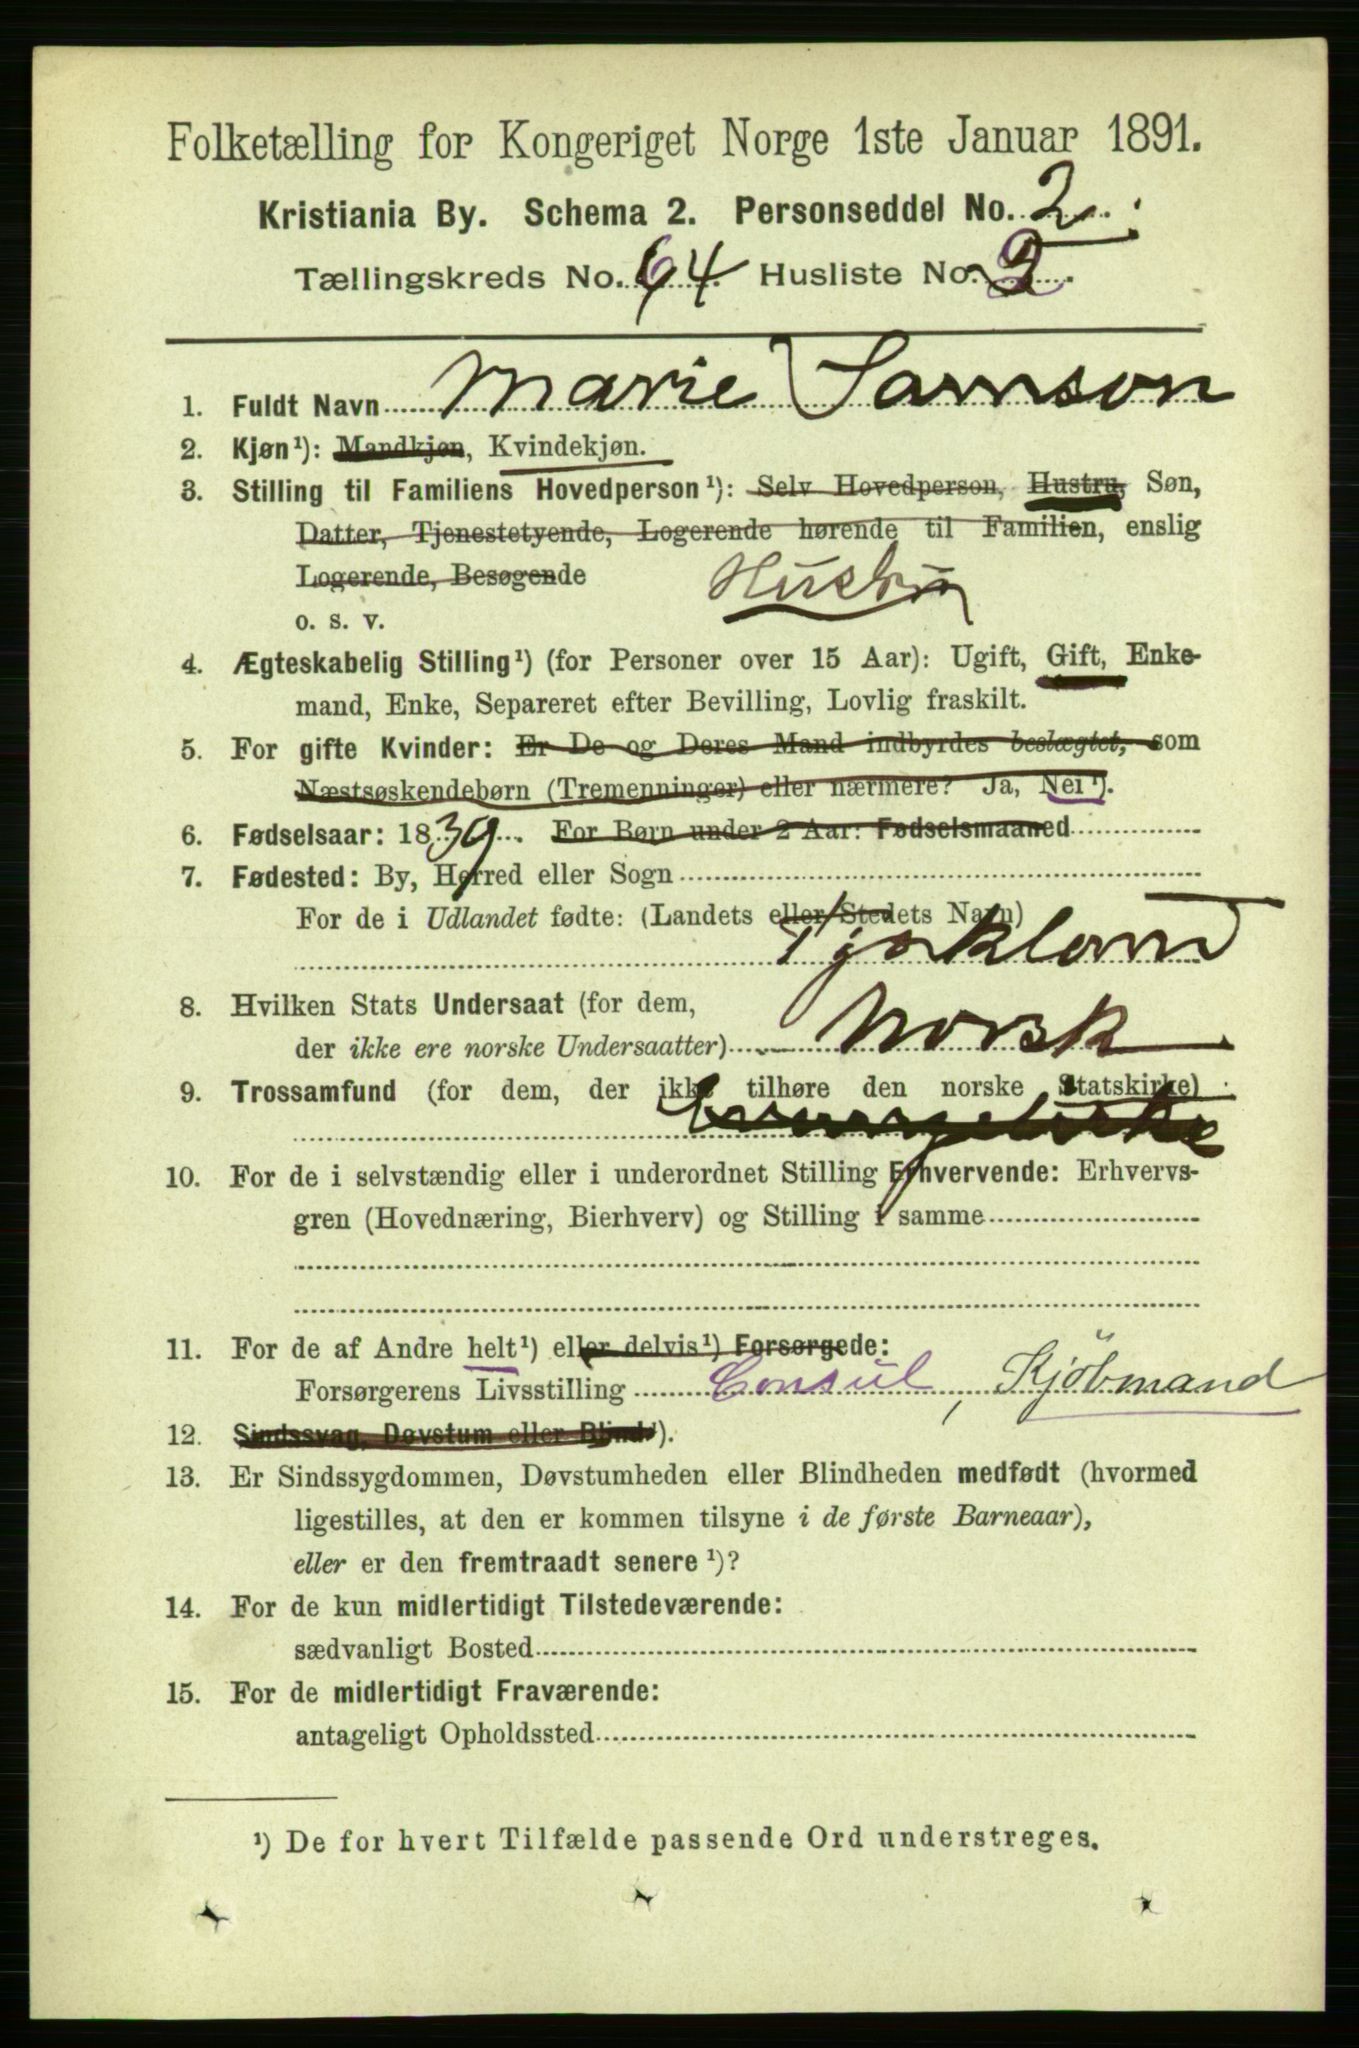 Folketælling for Kongeriget Norge 1ste Januar 1891.
Kristiania By. Schema 2. Personseddel No. 2.
Tællingskreds No. 64 Husliste No. 2.
1. Fuldt Navn Marie Samson
2. Kjøn¹): Mandkjøn, Kvindekjøn.
3. Stilling til Familiens Hovedperson¹): Selv Hovedperson, Hustru, Søn,
Datter, Tjenestetyende, Logerende hørende til Familien, enslig
Logerende, Besøgende Hustru
o. s. v.
4. Ægteskabelig Stilling¹) (for Personer over 15 Aar): Ugift, Gift, Enke-
mand, Enke, Separeret efter Bevilling, Lovlig fraskilt.
5. For gifte Kvinder: Er De og Deres Mand indbyrdes beslægtet, som
Næstsøskendebørn (Tremenninger) eller nærmere? Ja, Nei¹).
6. Fødselsaar: 1839. For Børn under 2 Aar: Fødselsmaaned
7. Fødested: By, Herred eller Sogn
For de i Udlandet fødte: (Landets eller Stedets Navn)
Tydskland
8. Hvilken Stats Undersaat (for dem,
der ikke ere norske Undersaatter) Norsk
9. Trossamfund (for dem, der ikke tilhøre den norske Statskirke)
10. For de i selvstændig eller i underordnet Stilling Erhvervende: Erhvervs-
gren (Hovednæring, Bierhverv) og Stilling i samme
11. For de af Andre helt¹) eller delvis¹) Forsørgede:
Forsørgerens Livsstilling Consul, Kjöbmand
12. Sindssvag, Døvstum eller Blind¹).
13. Er Sindssygdommen, Døvstumheden eller Blindheden medfødt (hvormed
ligestilles, at den er kommen tilsyne i de første Barneaar),
eller er den fremtraadt senere¹)?
14. For de kun midlertidigt Tilstedeværende:
sædvanligt Bosted
15. For de midlertidigt Fraværende:
antageligt Opholdssted
¹) De for hvert Tilfælde passende Ord understreges.